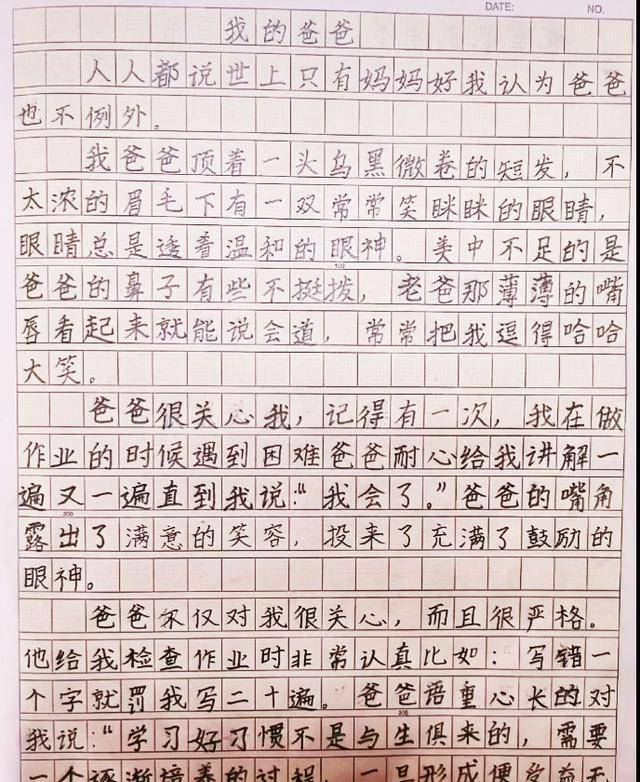 DATE: NO.
我的爸爸
人人都说世上只有妈妈好我认为爸爸
也不例外。
我爸爸顶着一头乌黑微卷的短发，不
太浓的眉毛下有一双常常笑眯眯的眼睛，
眼睛总是透着温和的眼神。美中不足的是
100
爸爸的鼻子有些不挺拨，老爸那薄薄的嘴
唇看起来就能说会道，常常把我逗得哈哈
大笑。
爸爸很关心我，记得有一次，我在做
作业的时候遇到困难爸爸耐心给我讲解一
遍又一遍直到我说：“我会了。”爸爸的嘴角
200
露出了满意的笑容，投来了充满了鼓励的
眼神。
爸爸不仅对我很关心，而且很严格。
他给我检查作业时非常认真比如：写错一
个字就罚我写二十遍。爸爸语重心长的对
300
我说：“学习好习惯不是与生俱来的，需要
一个逐渐培养的过程，一旦形成便